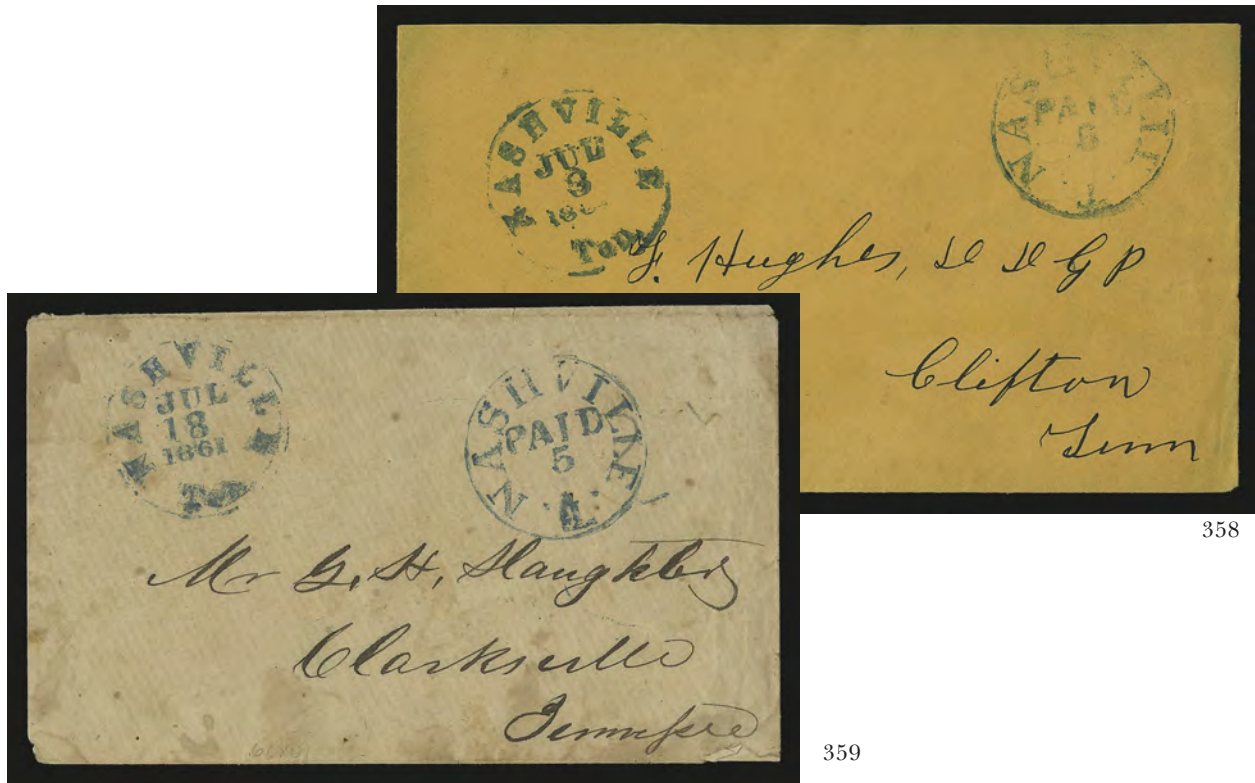 NASHVILLE
JUL
8
186
Ten.
PAID
5
F. Hughes, D D G P
Clifton
Tenn
358
NASHVILLE
JUL
18
1861
Ten
NASHVILLE
PAID
5
T.
Mr G. H. Slaughter
Clarksville
Tennessee
359